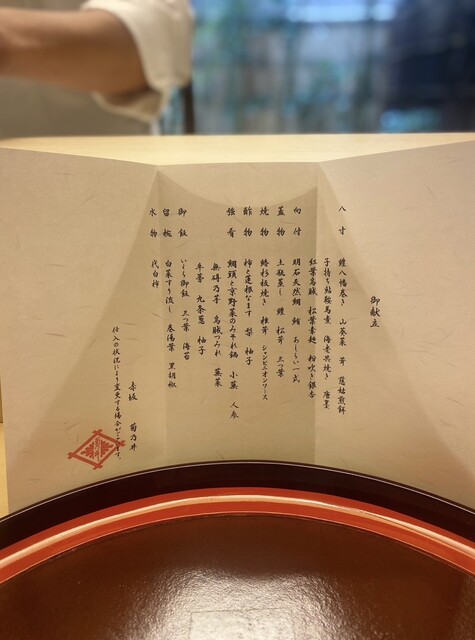 御献立
八寸 鱧八幡巻き 山葵菜 茸 慈姑煎餅
子持ち鮎鞍馬煮 海老共焼き 唐墨
紅葉烏賊 松葉素麺 粉吹き銀杏
向付 明石天然鯛 鮪 あしらい一式
蓋物 土瓶蒸し 鱧 松茸 三つ葉
焼物 鰆杉板焼き 椎茸 シャンピニオンソース
酢物 柿と蓮根なます 梨 柚子
強肴 鯛頭と京野菜のみぞれ鍋 小蕪 人参
無碍乃芋 烏賊つみれ 菜
牛蒡 九条葱 柚子
御飯 いくら御飯 三つ葉 海苔
留椀 白菜すり流し 巻湯葉 黒胡椒
水物 代白柿
赤坂 菊乃井
仕入の状況により変更する場合がございます。